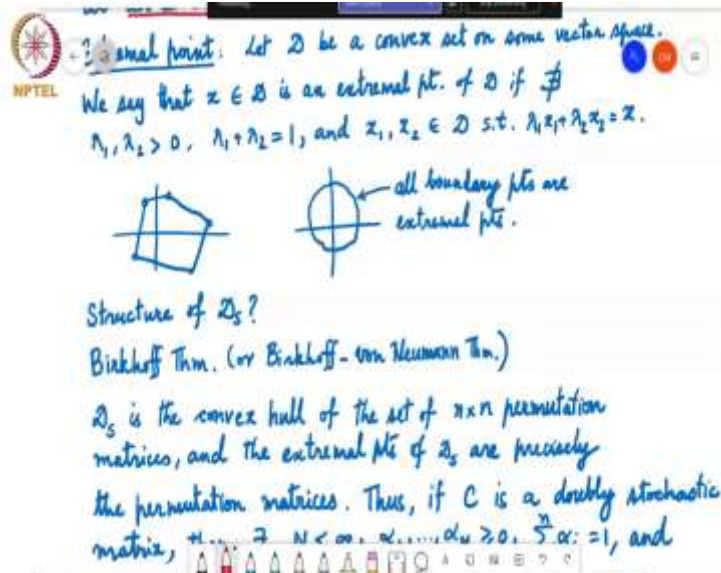 Extremal point: Let D be a convex set on some vector space.
We say that x ∈ D is an extremal pt. of D if ∄
λ₁, λ₂ > 0, λ₁ + λ₂ = 1, and x₁, x₂ ∈ D s.t. λ₁x₁ + λ₂x₂ = x.
all boundary pts are
extremal pts.
Structure of D_s?
Birkhoff Thm. (or Birkhoff-von Neumann Thm.)
D_s is the convex hull of the set of n×n permutation
matrices, and the extremal pts of D_s are precisely
the permutation matrices. Thus, if C is a doubly stochastic
matrix, N < ∞, α₁, ..., α_N ≥ 0, Σⁿ αᵢ = 1, and
NPTEL